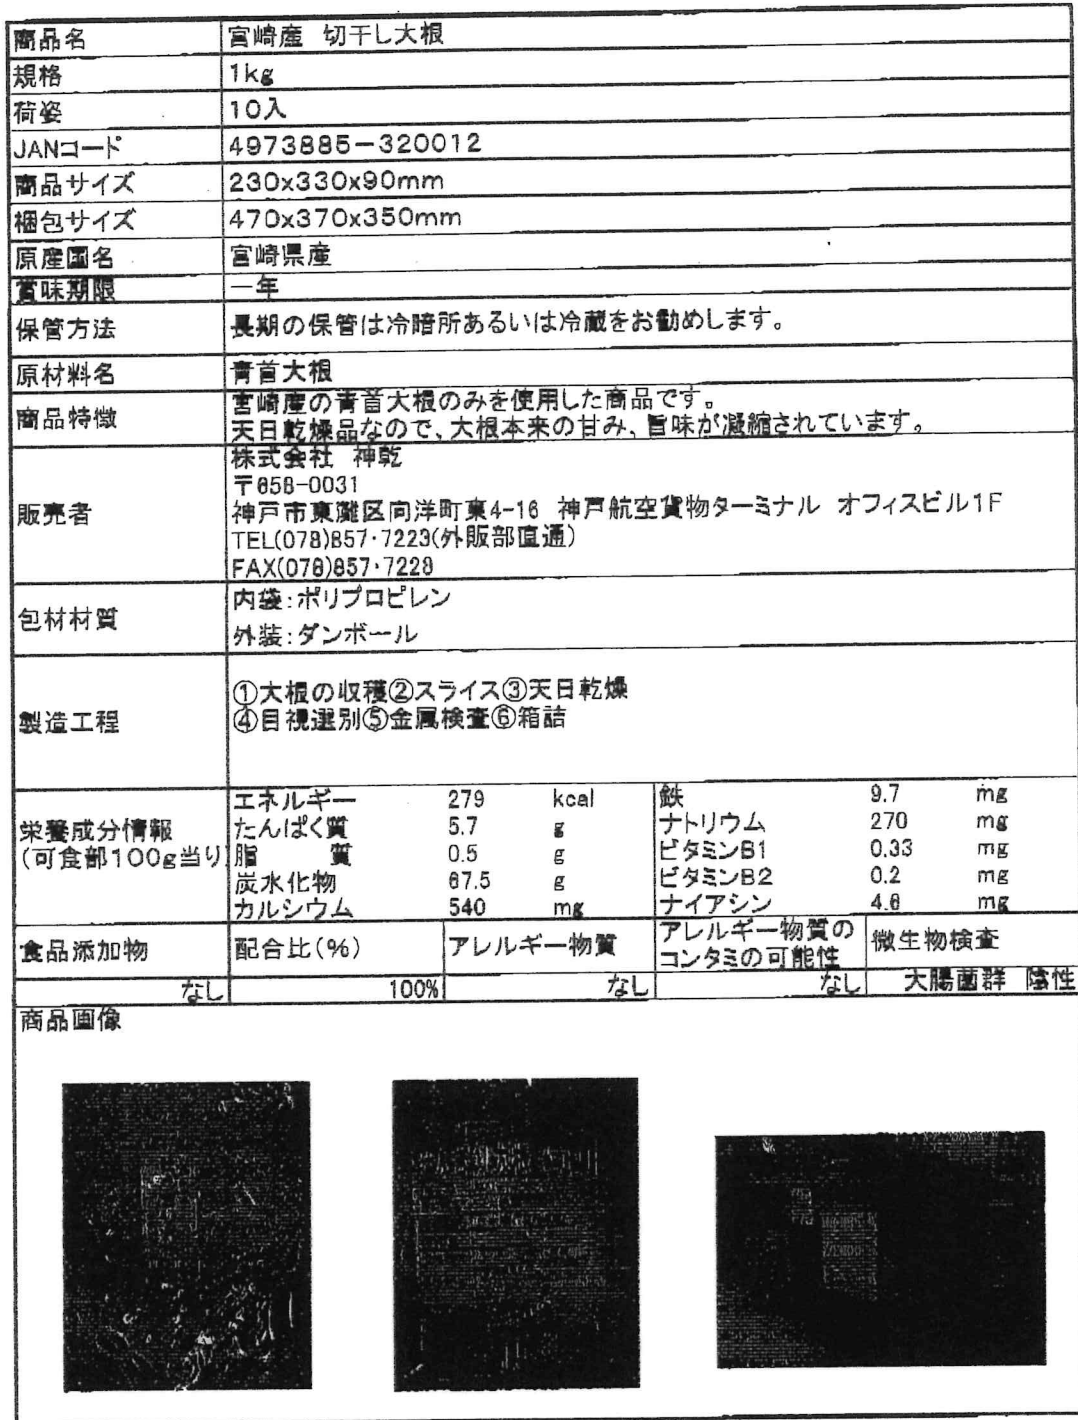 商品名 宮崎産 切干し大根
規格 1kg
荷姿 10入
JANコード 4973885-320012
商品サイズ 230x330x90mm
梱包サイズ 470x370x350mm
原産国名 宮崎県産
賞味期限 一年
保管方法 長期の保管は冷暗所あるいは冷蔵をお勧めします。
原材料名 青首大根
商品特徴 宮崎産の青首大根のみを使用した商品です。
天日乾燥品なので、大根本来の甘み、旨味が凝縮されています。
販売者 株式会社 神乾
〒658-0031
神戸市東灘区向洋町東4-16 神戸航空貨物ターミナル オフィスビル1F
TEL(078)857・7223(外販部直通)
FAX(078)857・7228
包材材質 内袋:ポリプロピレン
外装:ダンボール
製造工程 ①大根の収穫②スライス③天日乾燥
④目視選別⑤金属検査⑥箱詰
栄養成分情報
(可食部100g当り)
エネルギー 279 kcal 鉄 9.7 mg
たんぱく質 5.7 g ナトリウム 270 mg
脂 質 0.5 g ビタミンB1 0.33 mg
炭水化物 67.5 g ビタミンB2 0.2 mg
カルシウム 540 mg ナイアシン 4.6 mg
食品添加物 配合比(%) アレルギー物質 アレルギー物質のコンタミの可能性 微生物検査
なし 100% なし なし 大腸菌群 陰性
商品画像